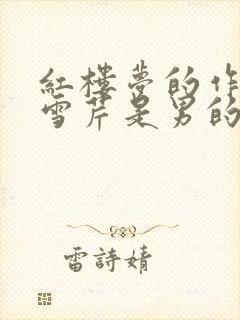 紅樓夢的作
雪芹是男的
雷詩婧